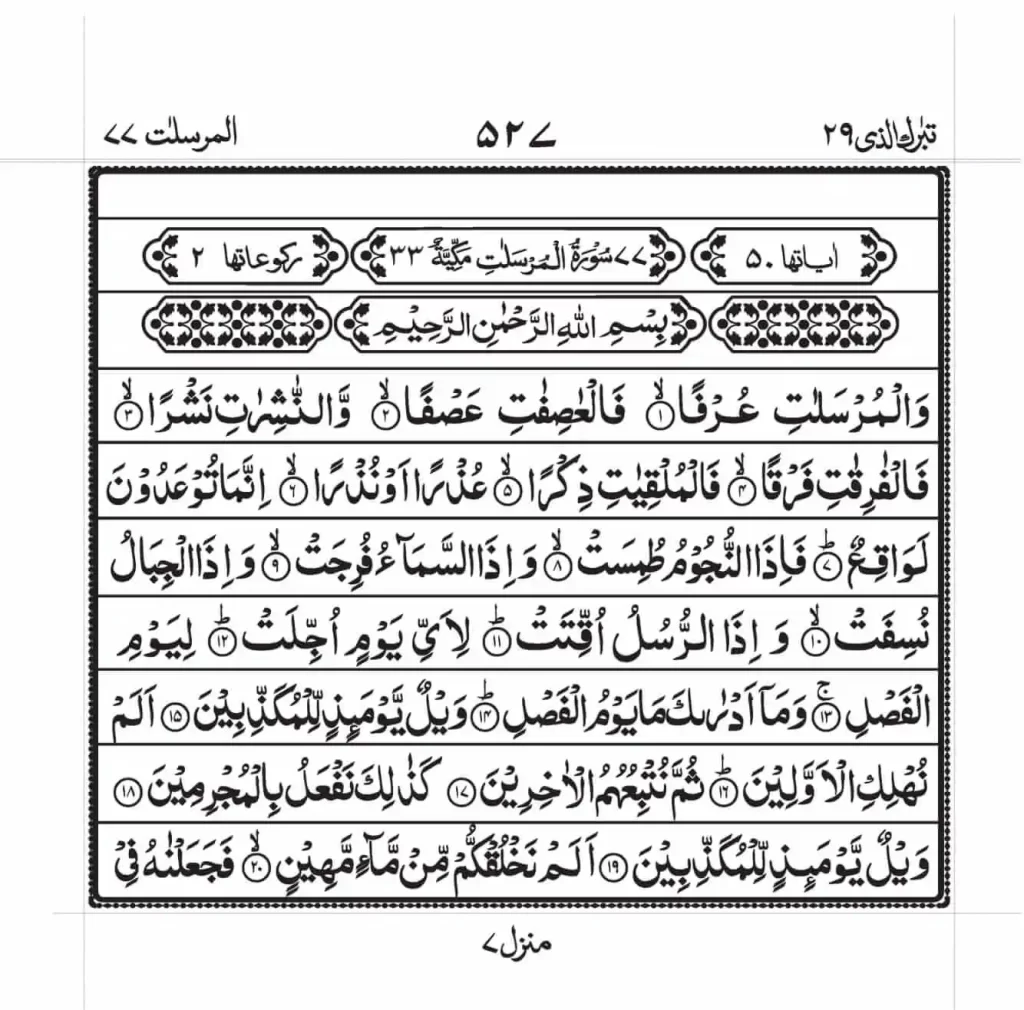 تبٰرك الذی ۲۹ ۵۲۷ المرسلٰت ۷۷
اٰیاتها ۵۰ ۷۷ سُوْرَةُ الْمُرْسَلٰتِ مَكِّيَّةٌ ۳۳ ركوعاتها ۲
بِسْمِ اللهِ الرَّحْمٰنِ الرَّحِيْمِ
وَالْمُرْسَلٰتِ عُرْفًا ۙ‏﴿۱﴾ فَالْعٰصِفٰتِ عَصْفًا ۙ‏﴿۲﴾ وَّالنّٰشِرٰتِ نَشْرًا ۙ‏﴿۳﴾
فَالْفٰرِقٰتِ فَرْقًا ۙ‏﴿۴﴾ فَالْمُلْقِيٰتِ ذِكْرًا ۙ‏﴿۵﴾ عُذْرًا اَوْ نُذْرًا ۙ‏﴿۶﴾ اِنَّمَا تُوْعَدُوْنَ
لَوَاقِعٌ ؕ‏﴿۷﴾ فَاِذَا النُّجُوْمُ طُمِسَتْ ۙ‏﴿۸﴾ وَ اِذَا السَّمَآءُ فُرِجَتْ ۙ‏﴿۹﴾ وَ اِذَا الْجِبَالُ
نُسِفَتْ ۙ‏﴿۱۰﴾ وَ اِذَا الرُّسُلُ اُقِّتَتْ ؕ‏﴿۱۱﴾ لِاَيِّ يَوْمٍ اُجِّلَتْ ؕ‏﴿۱۲﴾ لِيَوْمِ
الْفَصْلِ ۚ‏﴿۱۳﴾ وَمَاۤ اَدْرٰىكَ مَا يَوْمُ الْفَصْلِ ؕ‏﴿۱۴﴾ وَيْلٌ يَّوْمَئِذٍ لِّلْمُكَذِّبِيْنَ ‏﴿۱۵﴾ اَلَمْ
نُهْلِكِ الْاَوَّلِيْنَ ؕ‏﴿۱۶﴾ ثُمَّ نُتْبِعُهُمُ الْاٰخِرِيْنَ ‏﴿۱۷﴾ كَذٰلِكَ نَفْعَلُ بِالْمُجْرِمِيْنَ ‏﴿۱۸﴾
وَيْلٌ يَّوْمَئِذٍ لِّلْمُكَذِّبِيْنَ ‏﴿۱۹﴾ اَلَمْ نَخْلُقْكُّمْ مِّنْ مَّآءٍ مَّهِيْنٍ ۙ‏﴿۲۰﴾ فَجَعَلْنٰهُ فِيْ
منزل ۷